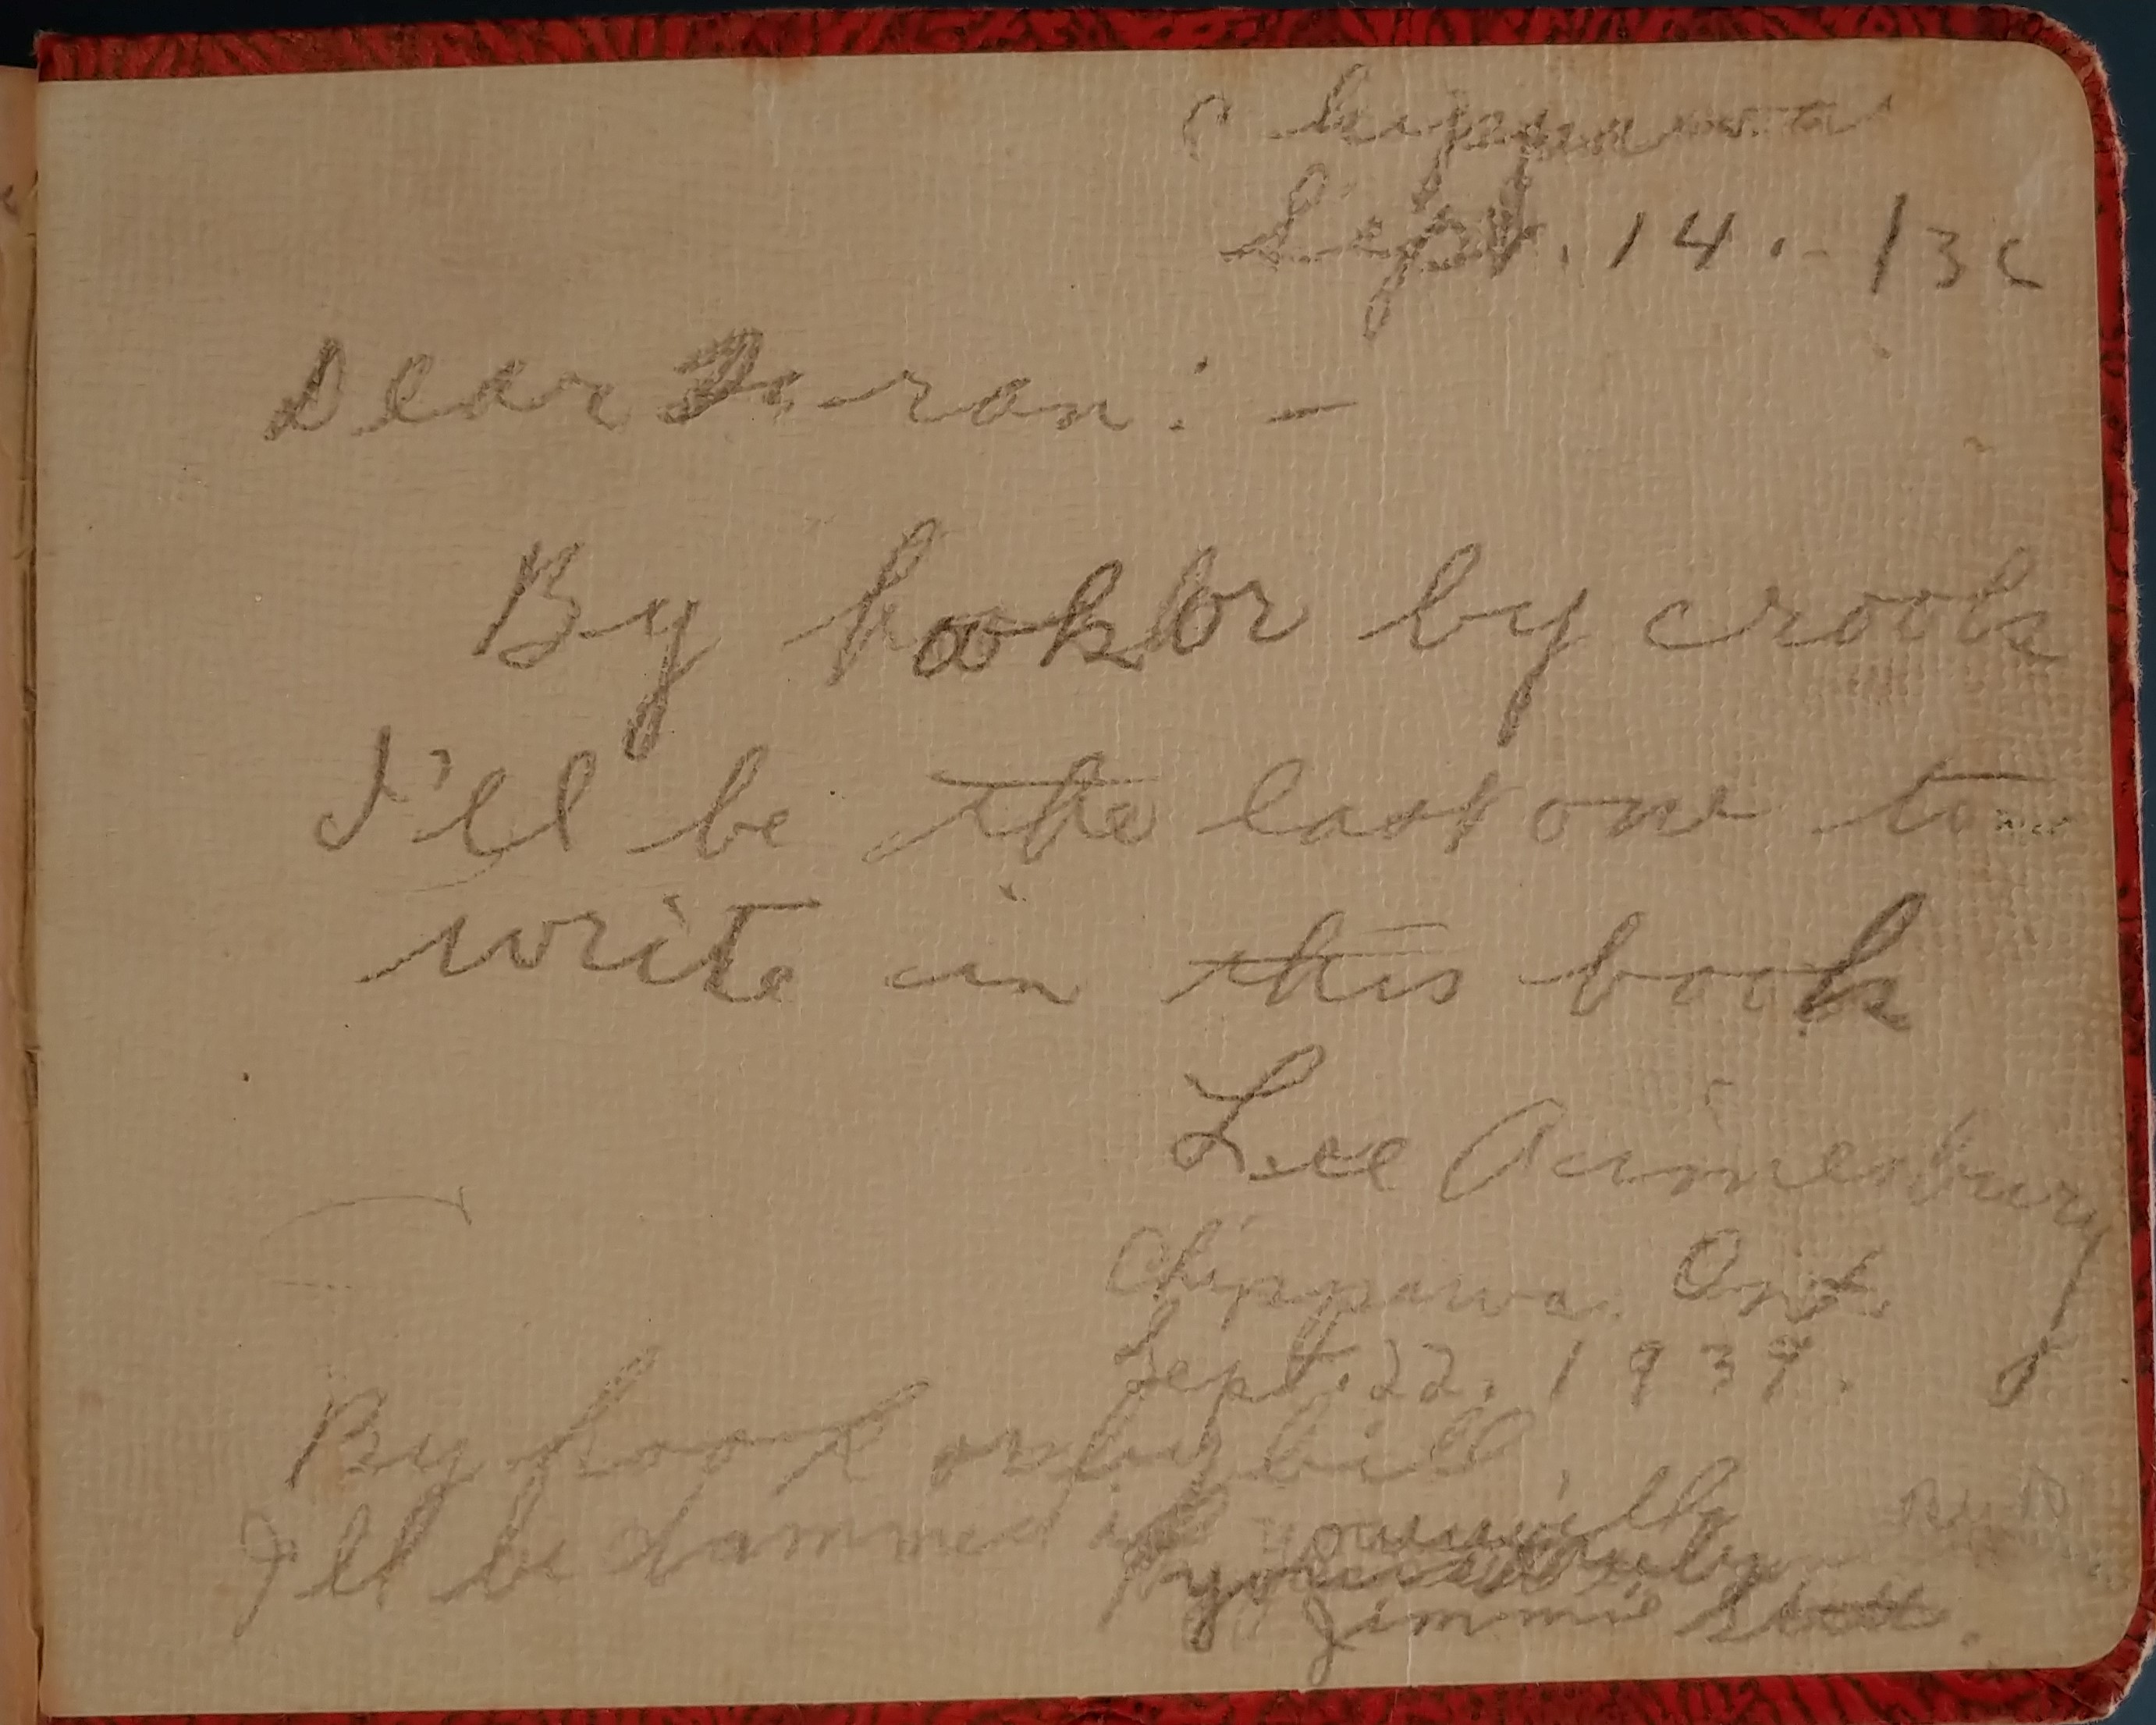 Chippawa
Sept. 14 . - 13
Dear Fran : -
By hook or by crook
I'll be the last one to
write in this book
Lee
Chippawa. Ont.
Sept. 22, 1937.
By hook or by bill
I'll be dammed if you will
Jimmie Stott.